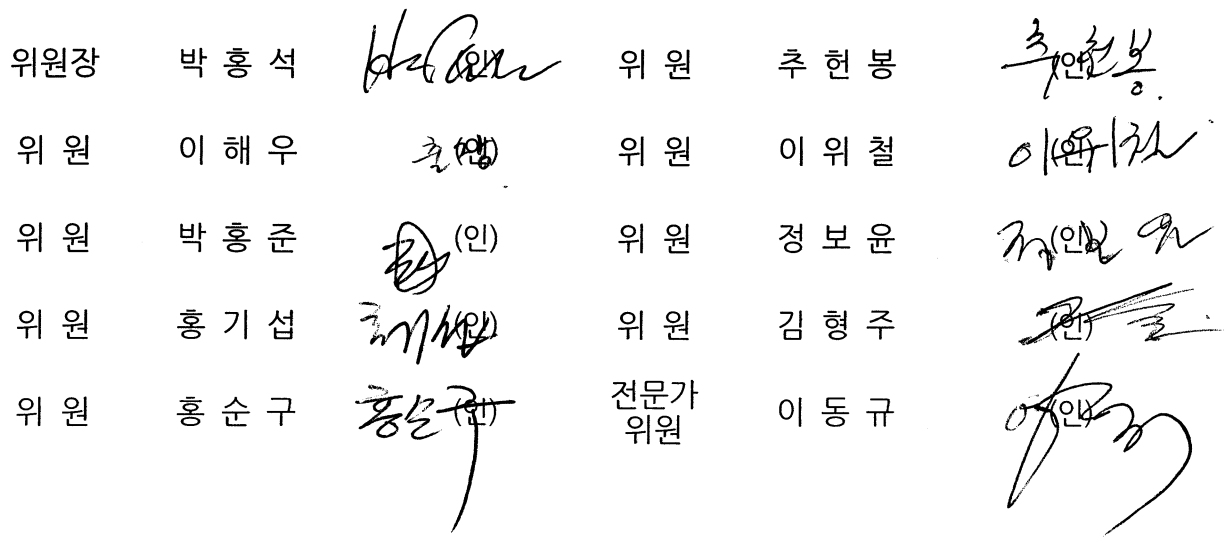 위원장 박 홍 석 (인) 위 원 추 헌 봉 (인)
위 원 이 해 우 (인) 위 원 이 위 철 (인)
위 원 박 홍 준 (인) 위 원 정 보 윤 (인)
위 원 홍 기 섭 (인) 위 원 김 형 주 (인)
위 원 홍 순 구 (인) 전문가 위원 이 동 규 (인)